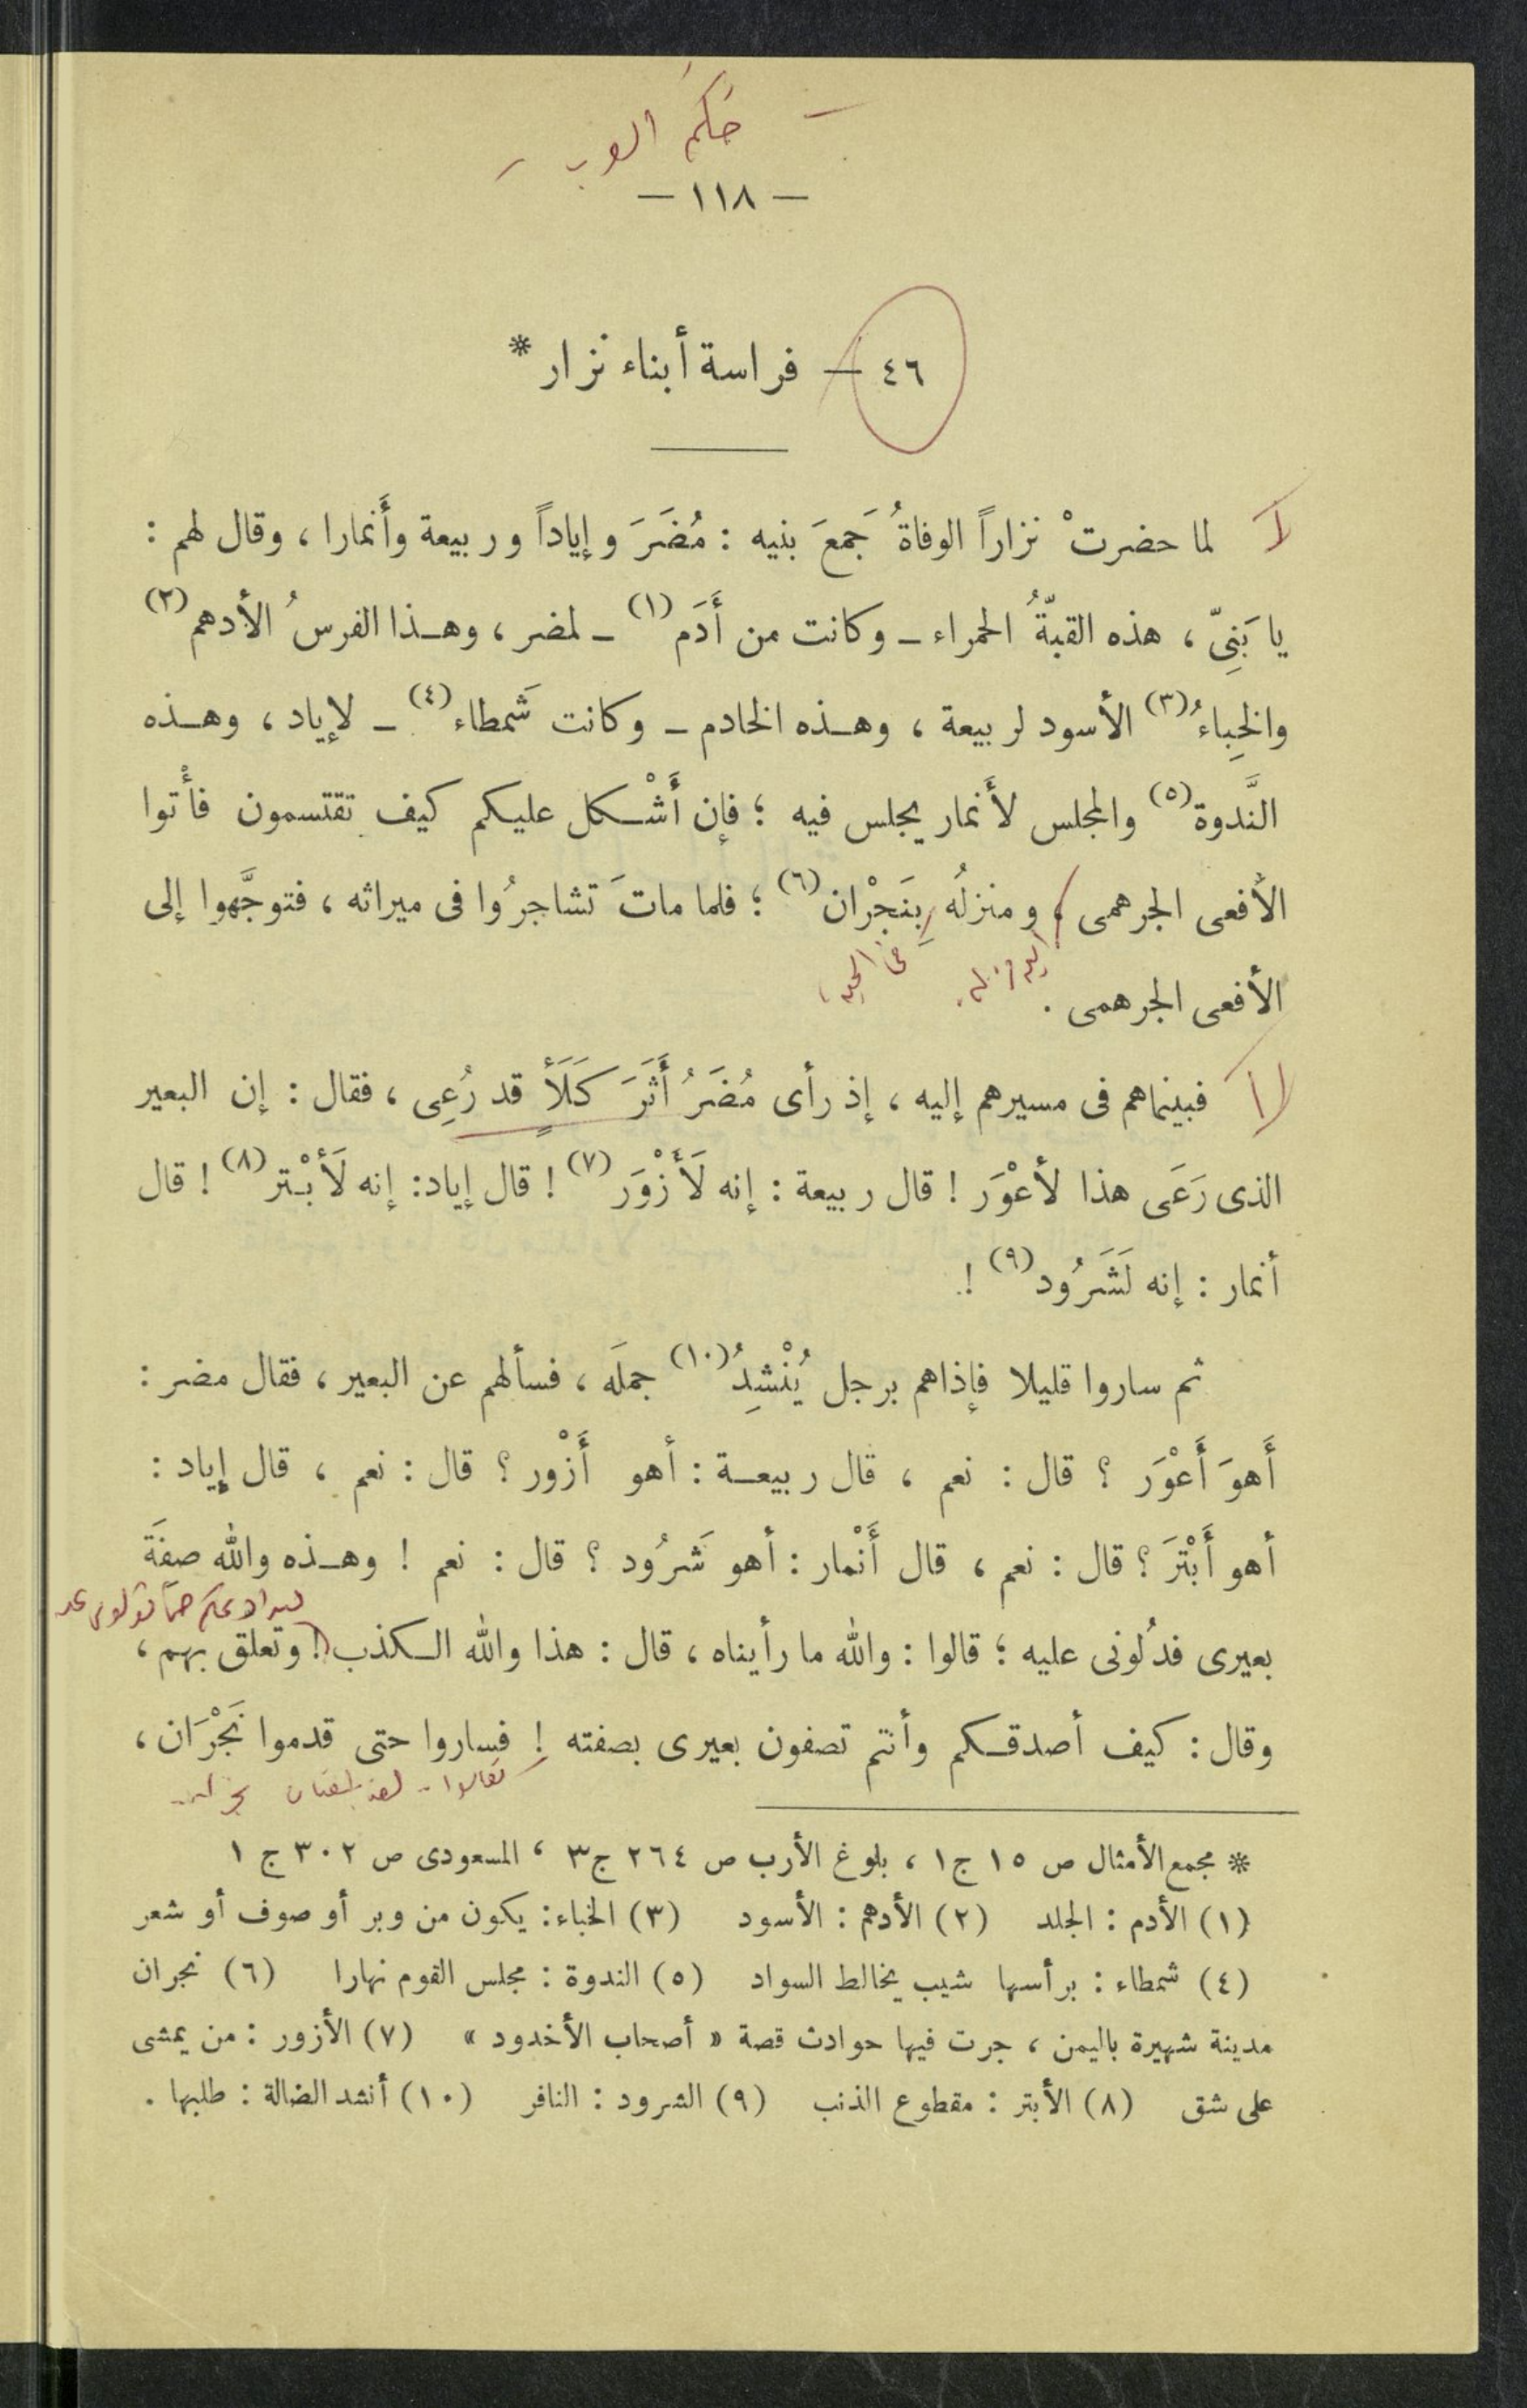 حكم العرب
— ١١٨ —
٤٦ — فراسة أبناء نزار *
لما حضرتْ نزاراً الوفاةُ جَمعَ بنيه : مُضَرَ وإياداً وربيعة وأَنمارا ، وقال لهم :
يا بَنِىّ ، هذه القبّةُ الحمراء ــ وكانت من أَدَم (١) ــ لمضر ، وهـذا الفرسُ الأدهم (٢)
والخِباءُ (٣) الأسود لربيعة ، وهـذه الخادم ــ وكانت شَمطاء (٤) ــ لإياد ، وهـذه
النَّدوة (٥) والمجلس لأَنمار يجلس فيه ؛ فإن أَشْـكل عليـكم كيف تقتسمون فأْتوا
الأفعى الجرهمى ، ومنزلُه بِنَجْران (٦) ؛ فلما ماتَ تشاجرُوا فى ميراثه ، فتوجَّهوا إلى
الأفعى الجرهمى .
فبينماهم فى مسيرهم إليه ، إذ رأى مُضَرُ أَثَرَ كَلَأٍ قد رُعِى ، فقال : إن البعير
الذى رَعَى هذا لأعْوَر ! قال ربيعة : إنه لَأَزْوَر (٧) ! قال إياد : إنه لَأَبْـتر (٨) ! قال
أنمار : إنه لَشَرُود (٩) !
ثم ساروا قليلا فإذاهم برجل يُنْشِدُ (١٠) جملَه ، فسألهم عن البعير ، فقال مضر :
أَهوَ أَعْوَر ؟ قال : نعم ، قال ربيعـة : أهو أَزْور ؟ قال : نعم ، قال إياد :
أهو أَبْتَرَ ؟ قال : نعم ، قال أَنْمار : أهو شَرُود ؟ قال : نعم ! وهـذه والله صِفَة
بعيرى فدُلونى عليه ؛ قالوا : والله ما رأيناه ، قال : هذا والله الـكذب ! وتعلق بهم ،
وقال : كيف أصدقـكم وأنتم تصفون بعيرى بصفته ! فساروا حتى قدموا نَجْرَان ،
* مجمع الأمثال ص ١٥ ج ١ ، بلوغ الأرب ص ٢٦٤ ج ٣ ، المسعودى ص ٣٠٢ ج ١
(١) الأدم : الجلد (٢) الأدهم : الأسود (٣) الخباء : يكون من وبر أو صوف أو شعر
(٤) شمطاء : برأسها شيب يخالط السواد (٥) الندوة : مجلس القوم نهارا (٦) نجران
مدينة شهيرة باليمن ، جرت فيها حوادث قصة « أصحاب الأخدود » (٧) الأزور : من يمشى
على شق (٨) الأبتر : مقطوع الذنب (٩) الشرود : النافر (١٠) أنشد الضالة : طلبها .